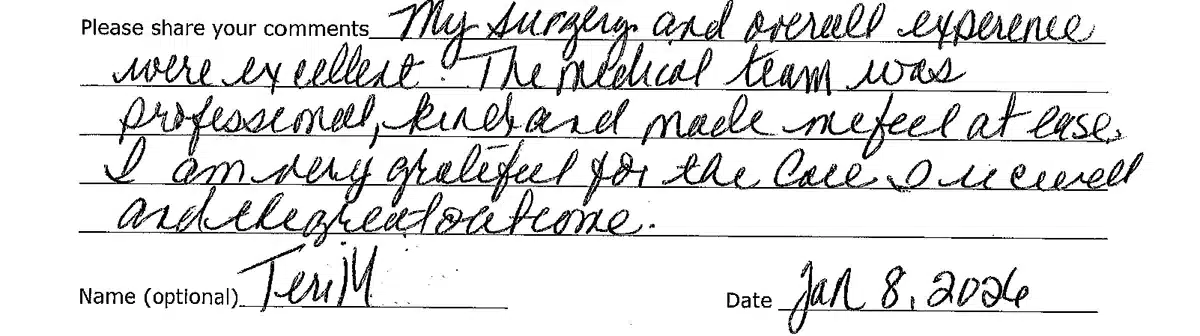 Please share your comments My surgery and overall experence
were excellent. The medical team was
professional, kind, and made me feel at ease.
I am very grateful for the Care I received
and the great outcome.
Name (optional) Teri M
Date Jan 8, 2026